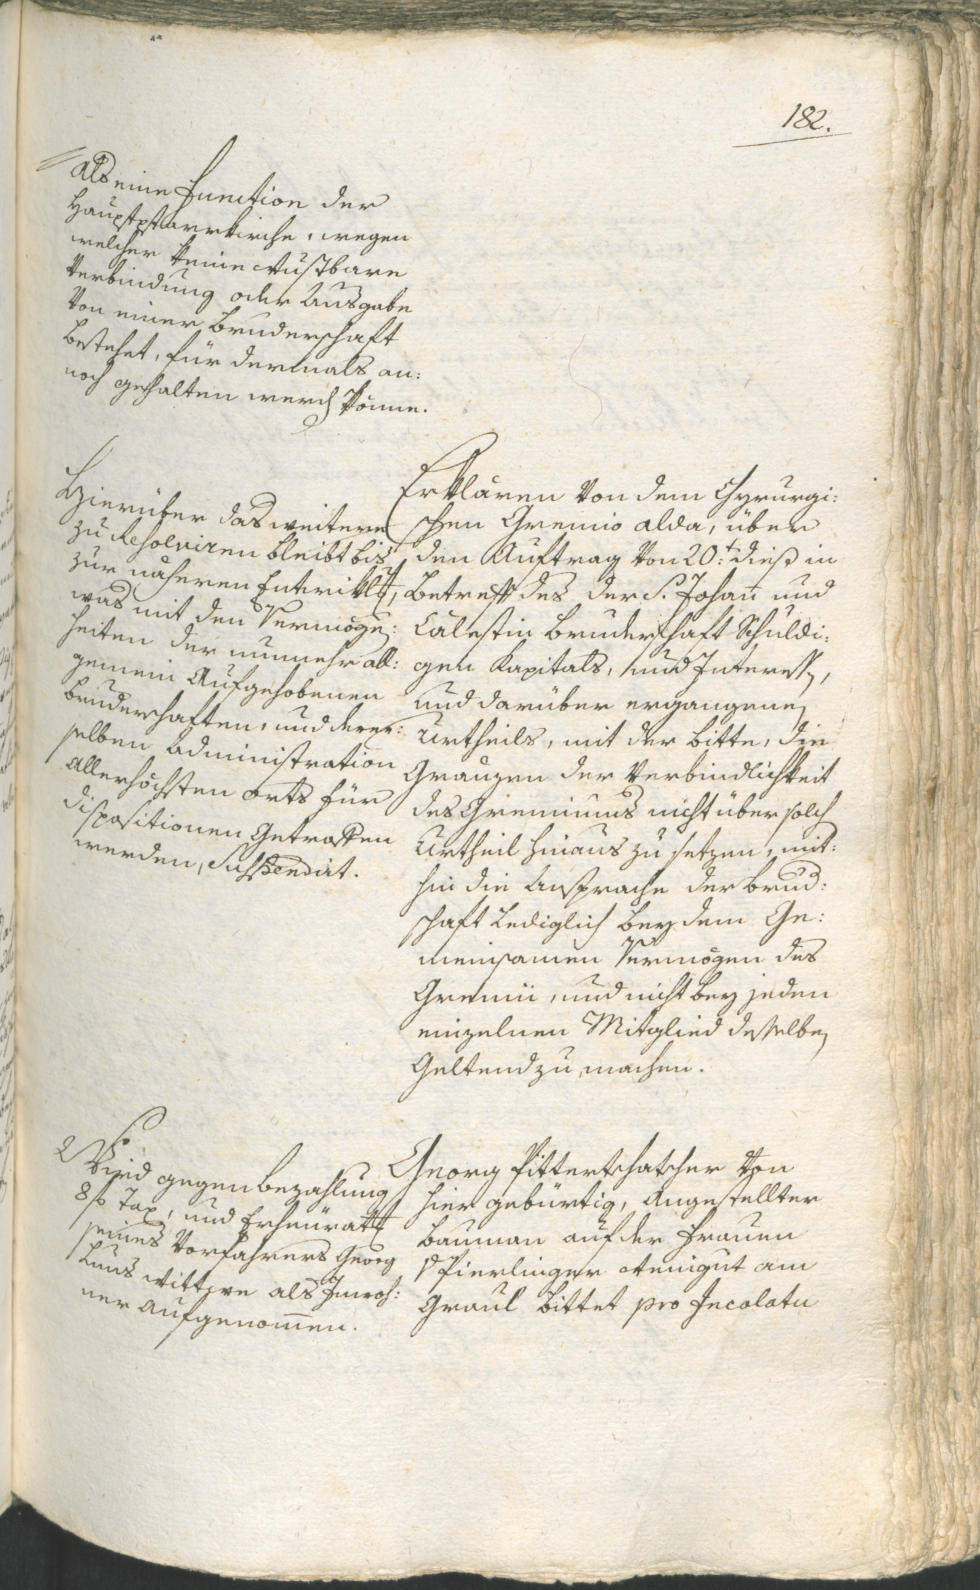 182.
Als eine Function der
Hauptpfarrkirche, wegen
welcher keine Kustbare
Verbindung oder Ausgabe
Von einer Bruderschaft
bestehet, für dermals an:
noch gehalten werden könne.
Hierüber das weitere
zu Resolviren bleibt bis
zur näheren Entwicklung,
was mit den Vermögen:
heiten der nunmehr all:
gemein Aufgehobenen
Bruderschaften, und derer:
selben Administration
Allerhöchsten Orts für
dispositionen Getroffen
werden, Suspendirt.
Erklären Von dem Chyrurgi:
schen Gremio alda, über
den Auftrag Von 20t. dieß in
Betreff des der S. Johann und
Cälestin Bruderschaft Schuldi:
gen Kapitals, und Interessen,
und darüber ergangenen
Urtheils, mit der Bitte, die
Gränzen der Verbindlichkeit
des Gremiums nicht über solch
Urtheil hinaus zu setzen, mit:
hin die Ansprache der Brud:
schaft Lediglich bey dem Ge:
meinsamen Vermögen des
Gremii, und nicht bey jeden
einzelnen Mitglied desselben
Geltend zu machen.
Wird gegen Bezahlung
8 f Tax, und Erheürath
seines Vorfahrers Georg
Wittwe als Inwoh:
ner Aufgenommen.
Georg Pittertschatscher Von
hier gebürtig, Angestellter
Bauman auf der Frauen
Pierlinger Weingut am
Graul bittet pro Incolatu